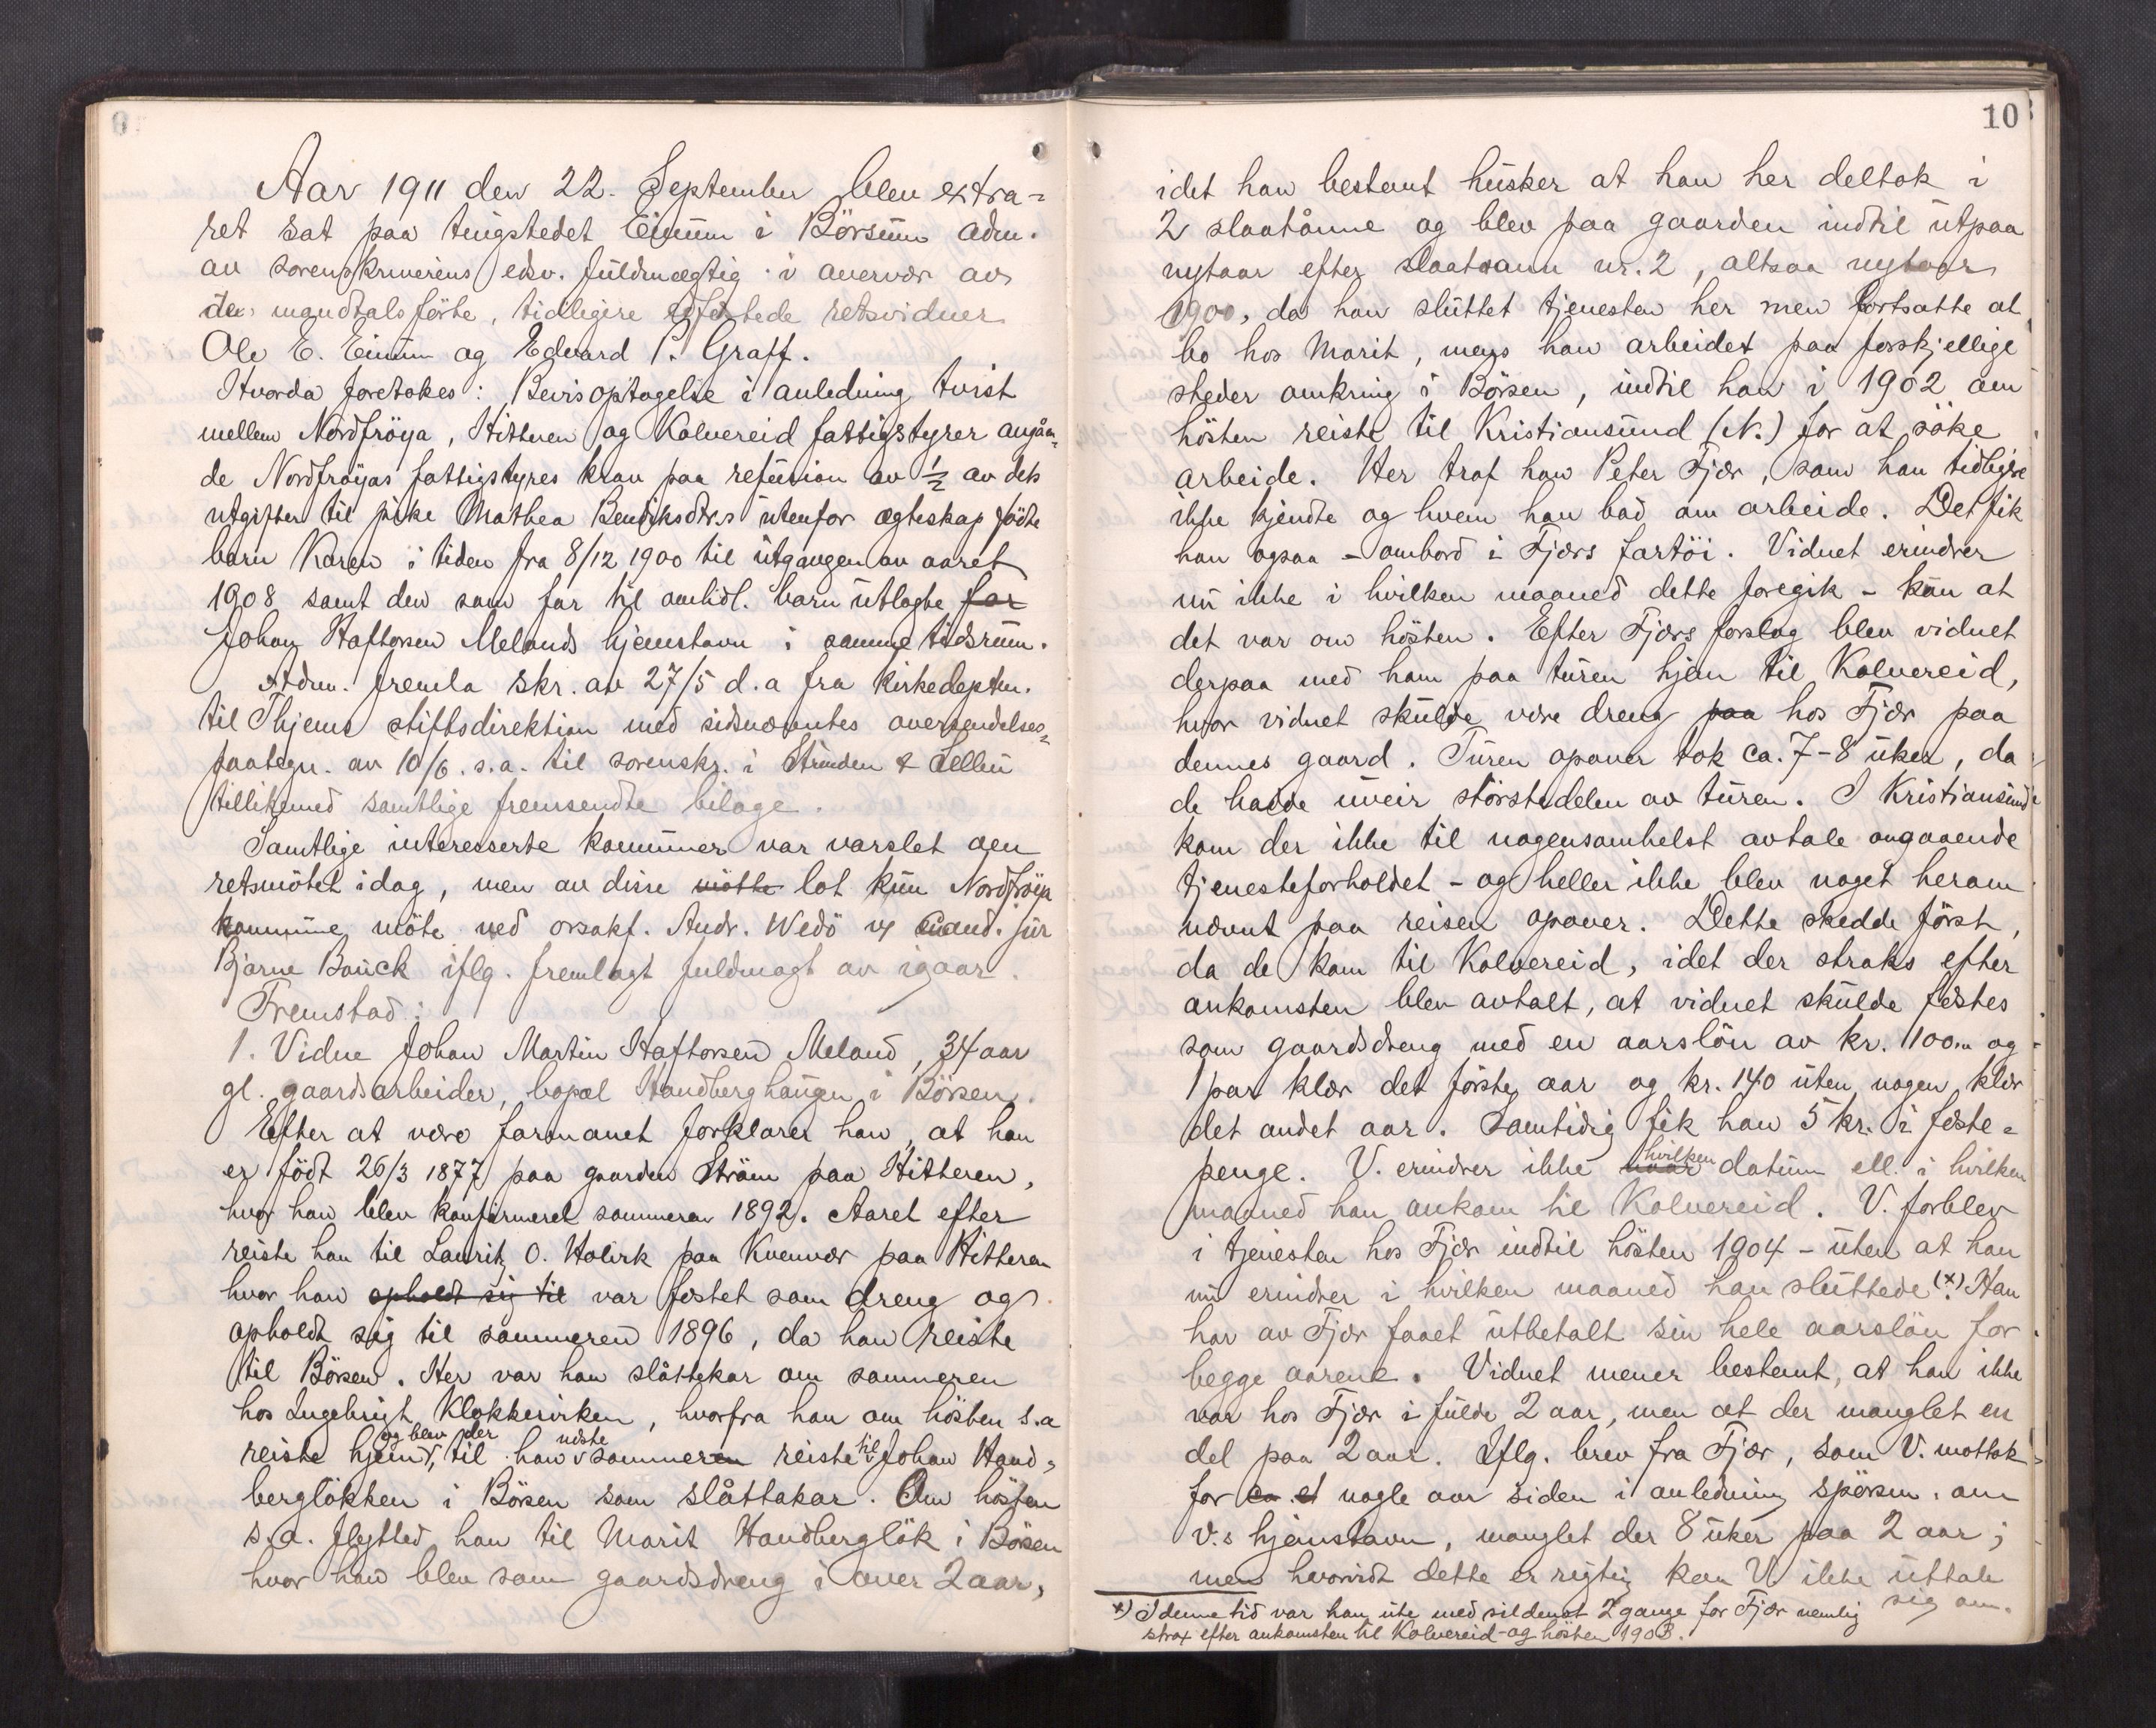 Aar 1911 den 22. September blev extra-
ret sat paa tingstedet Eimum i Börsum adm.
av sorenskriverens edsv. fuldmægtig i overvær av
de i mandtals förte, tidligere edfestede retsvidner
Ole E. Eimum og Edvard P. Graff.
Hvorda foretokes: Bevisoptagelse i anledning tvist
mellem Nordfröya, Hitteren og Kolvereid fattigstyrer angåen-
de Nordfröyas fattigstyres krav paa refusion av ½ av dets
utgifter til pike Mathea Bendiksdtr.s utenfor egteskap födte
barn Karen i tiden fra 8/12 1900 til utgangen av aaret
1908 samt den som far til omhdl. barn utlagte far
Johan Haftorsen Melands hjemstavn i samme tidsrum.
Adm. fremla skr. av 27/5 d.a fra kirkedeptm.
til Thjems stiftsdirektion med sidsnævntes oversendelses-
paategn. av 10/6 s.a. til sorenskr. i Strinden & Selbu
tillikemed samtlige fremsendte bilage.
Samtlige interesserte kommuner var varslet om
retsmötet idag, men av disse mötte lot kun Nordfröya
kommune möte ved orsakf. Andr. Wedö v/ cand. jur
Bjarne Bauck iflg. fremlagt fuldmagt av igaar.
Fremstod:
1. Vidne Johan Martin Haftorsen Meland, 34 aar
gl. gaardsarbeider, bopæl Handberghaugen i Börsen.
Efter at være formanet forklarer han, at han
er födt 26/3 1877 paa gaarden Ström paa Hitteren,
hvor han blev konfirmeret sommeren 1892. Aaret efter
reiste han til Lauritz O. Holvik paa Kvenvær paa Hitteren
hvor han opholdt sig til var festet som dreng og
opholdt sig til sommeren 1896, da han reiste
til Börsen. Her var han slåttekar om sommeren
hos Ingebrigt Klokkerviken, hvorfra han om hösten s.a
reiste hjem og blev der, til han næste sommeren reiste til Johan Hand-
berglökken i Börsen som slåttakar. Om hösten
s.a. flytted han til Marit Handberglök i Börsen
hvor han blev som gaardsdreng i over 2 aar,
10
idet han bestemt husker at han her deltok i
2 slaatånne og blev paa gaarden indtil utpaa
nytaar efter slaataann nr. 2, altsaa nytaar
1900, da han sluttet tjenesten her men fortsatte at
bo hos Marit, mens han arbeidet paa forskjellige
steder omkring i Börsen, indtil han i 1902 om
hösten reiste til Kristiansund (N.) for at söke
arbeide. Her traf han Peter Fjær, som han tidligere
ikke kjendte og hvem han bad om arbeide. Det fik
han ogsaa - ombord i Fjærs fartöi. Vidnet erindrer
nu ikke i hvilken maaned dette foregik - kun at
det var om hösten. Efter Fjærs forslag blev vidnet
derpaa med ham paa turen hjem til Kolvereid,
hvor vidnet skulde være dreng paa hos Fjær paa
dennes gaard. Turen opover tok ca. 7-8 uker, da
de hadde uveir störstedelen av turen. I Kristiansund
kom der ikke til nogensomhelst avtale angaaende
tjenesteforholdet - og heller ikke blev noget herom
nævnt paa reisen opover. Dette skedde först,
da de kom til Kolvereid, idet der straks efter
ankomsten blev avtalt, at vidnet skulde festes
som gaardsdreng med en aarslön av kr. 100,- og
1 par klær det förste aar og kr. 140 uten nogen klær
det andet aar. Samtidig fik han 5 kr. i feste-
penge. V. erindrer ikke naar hvilken datum ell. i hvilken
maaned han ankom til Kolvereid. V. forblev
i tjenesten hos Fjær indtil hösten 1904 - uten at han
nu erindrer i hvilken maaned han sluttede (x). Han
har av Fjær faaet utbetalt sin hele aarslön for
begge aarene. Vidnet mener bestemt, at han ikke
var hos Fjær i fulde 2 aar, men at der manglet en
del paa 2 aar. Iflg. brev fra Fjær, som V. mottok
for ca et nogle aar siden i anledning spörsm. om
V.s hjemstavn, manglet der 8 uker paa 2 aar;
men hvorvidt dette er rigtig kan V. ikke uttale
sig om.
x) I denne tid var han ute med sildenot 2 gange for Fjær nemlig
strax efter ankomsten til Kolvereid - og hösten 1903.